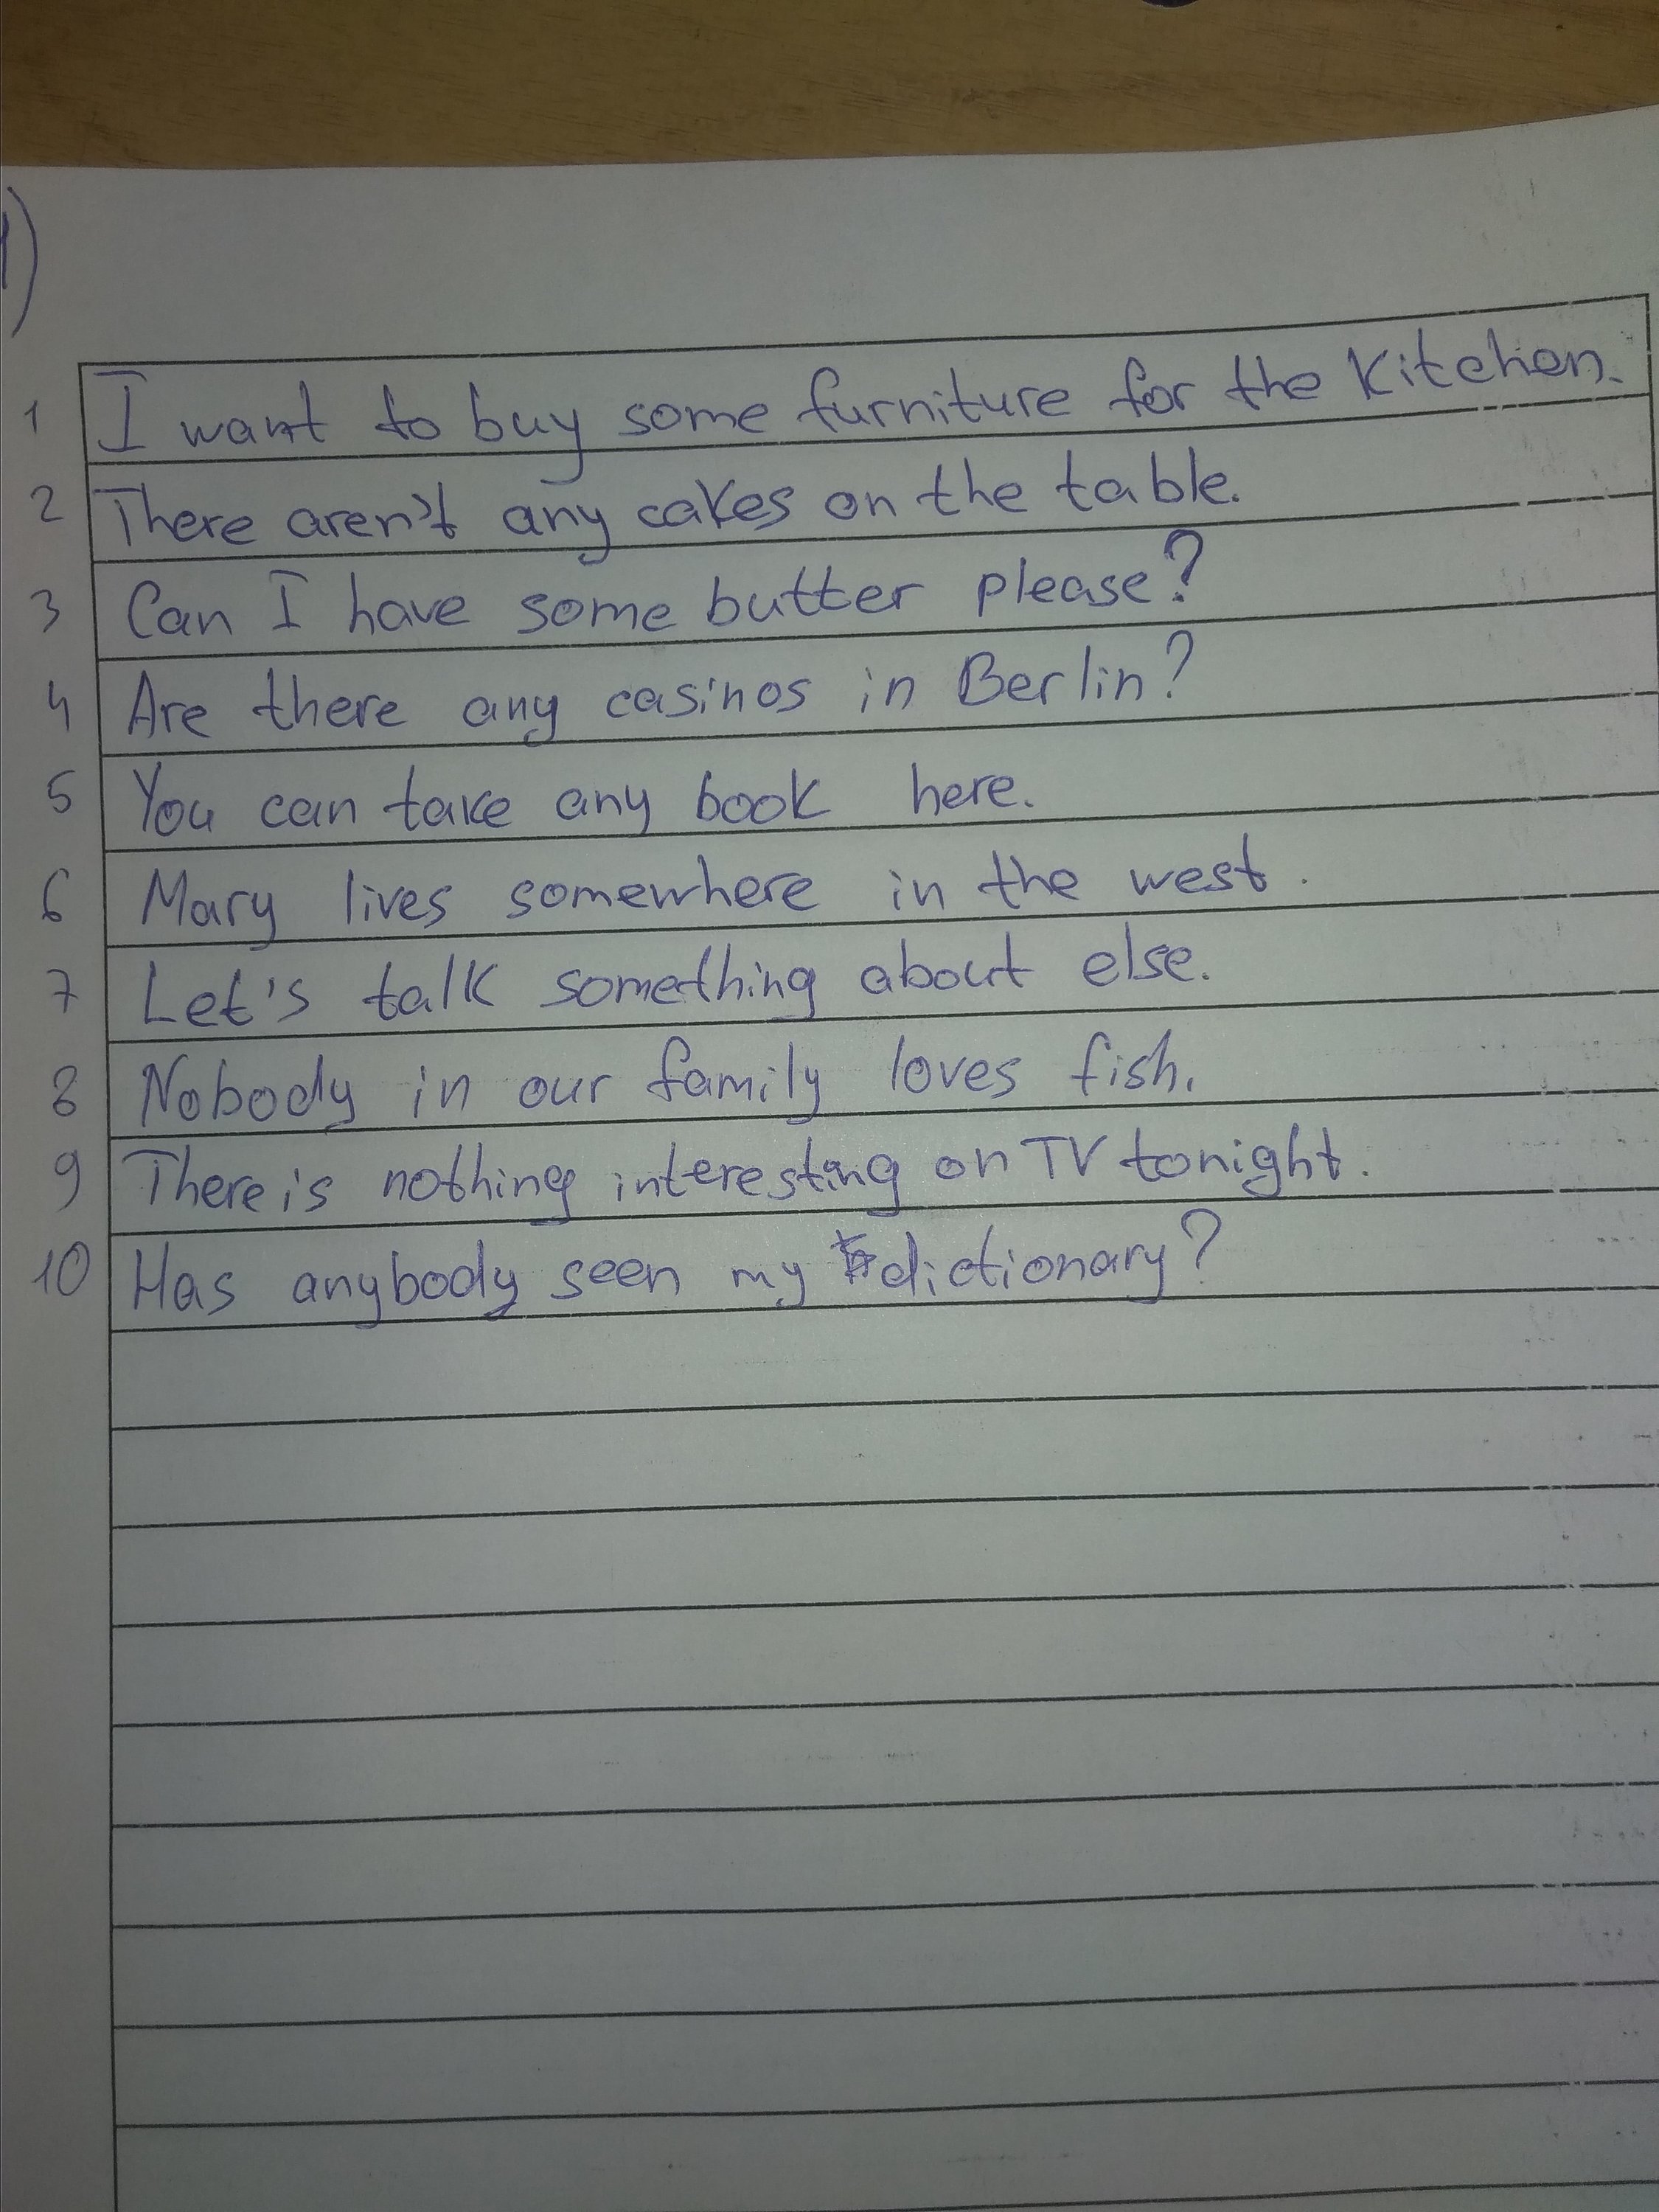 1)
1 I want to buy some furniture for the kitchen.
2 There aren't any cakes on the table.
3 Can I have some butter please?
4 Are there any casinos in Berlin?
5 You can take any book here.
6 Mary lives somewhere in the west.
7 Let's talk something about else.
8 Nobody in our family loves fish.
9 There is nothing interesting on TV tonight.
10 Has anybody seen my dictionary?